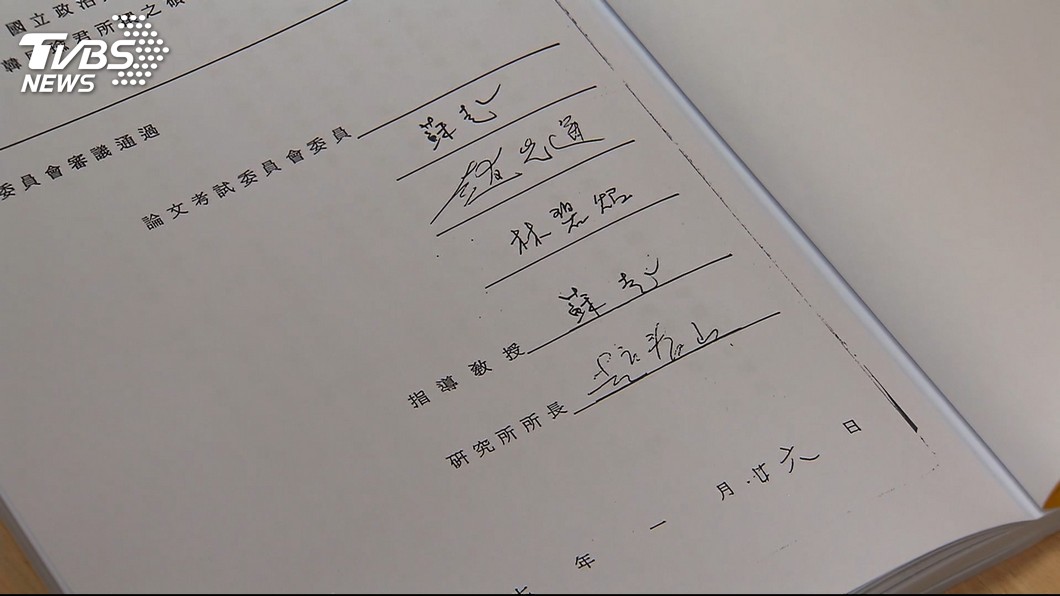 國立政治
TVBS
NEWS
韓國瑜君所提之碩
委員會審議通過
論文考試委員會委員 蘇起
趙春山
林碧炤
指導教授 蘇起
研究所所長
七年一月廿六日